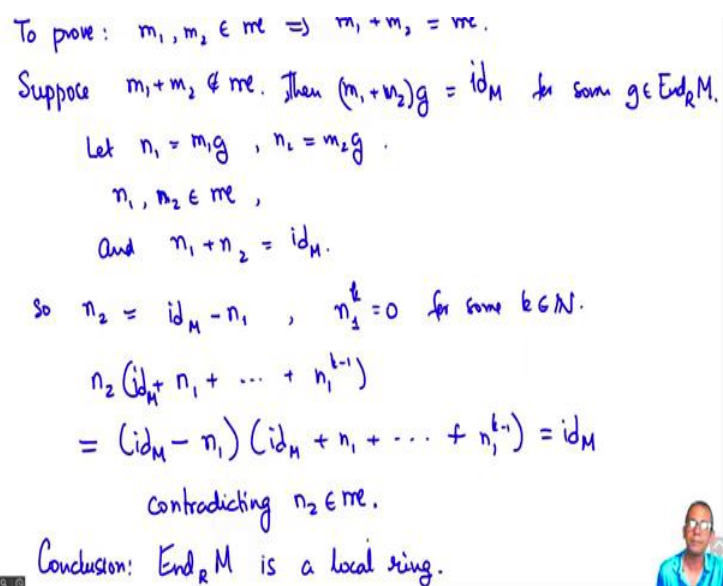 To prove: m₁, m₂ ∈ m ⇒ m₁ + m₂ = m.
Suppose m₁ + m₂ ∉ m. Then (m₁ + m₂)g = id_M for some g ∈ End_R M.
Let n₁ = m₁g , n₂ = m₂g .
n₁, n₂ ∈ m ,
and n₁ + n₂ = id_M.
So n₂ = id_M - n₁ , n₁ᵏ = 0 for some k ∈ ℕ.
n₂ (id_M + n₁ + ... + n₁ᵏ⁻¹)
= (id_M - n₁) (id_M + n₁ + ... + n₁ᵏ⁻¹) = id_M
contradicting n₂ ∈ m.
Conclusion: End_R M is a local ring.